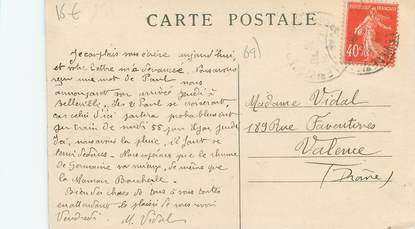 16 €
CARTE POSTALE
69)
RÉPUBLIQUE FRANÇAISE
40c
Je comptais vous écrire aujourd'hui,
et votre lettre m'a devancée. Nous avons
reçu un mot de Paul nous
annonçant son arrivée jeudi à
Belleville. Les 2 Paul se croiseront,
car celui d'ici partira probablement
par train de midi 55, par jeudi
ici, nous avons la pluie, il faut se
tenir dedans. Nous espérons que le rhume
de Germaine va mieux, de même que
la Maman
Bien des choses de tous à vous toutes
en attendant le plaisir de vous voir
Vendredi. M. Vidal
Madame Vidal
189 Rue Faventines
Valence
(Drôme)